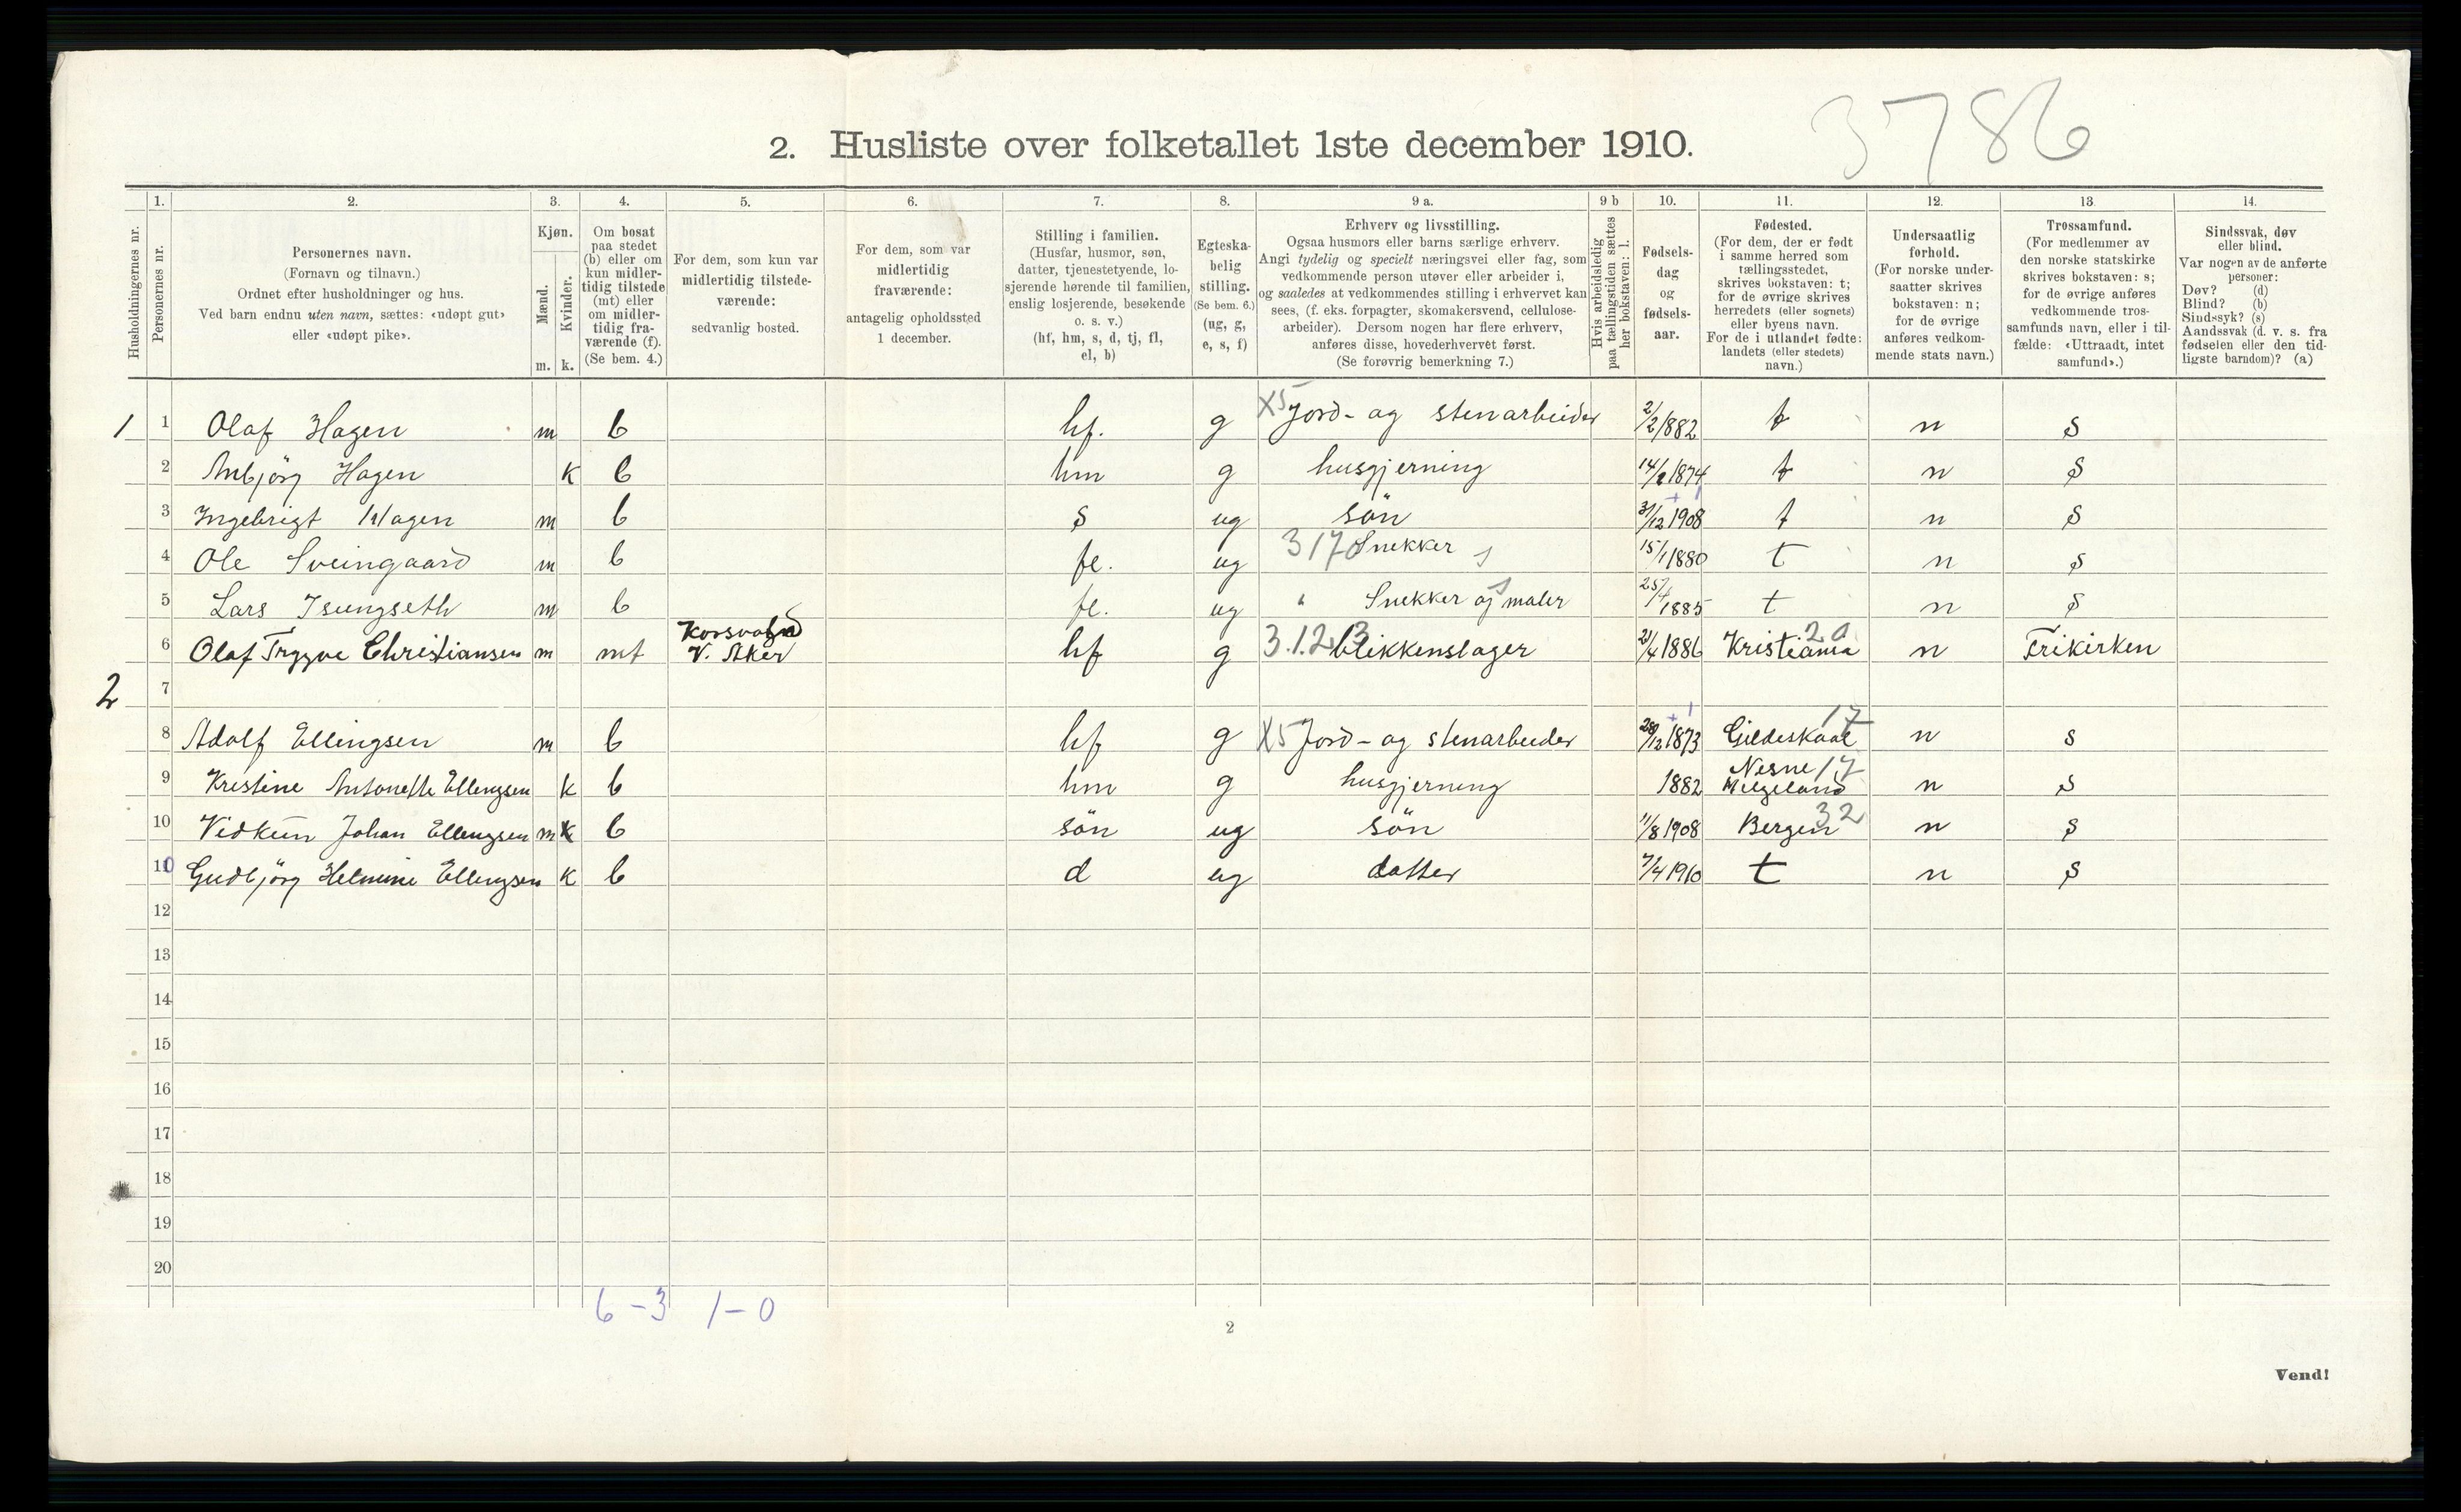 3786
2. Husliste over folketallet 1ste december 1910.
Husholdningernes nr.
1.
Personernes nr.
2.
Personernes navn.
(Fornavn og tilnavn.)
Ordnet efter husholdninger og hus.
Ved barn endnu uten navn, sættes: «udøpt gut»
eller «udøpt pike».
3.
Kjøn.
Mænd.
Kvinder.
m. k.
4.
Om bosat
paa stedet
(b) eller om
kun midler-
tidig tilstede
(mt) eller
om midler-
tidig fra-
værende (f).
(Se bem. 4.)
5.
For dem, som kun var
midlertidig tilstede-
værende:
sedvanlig bosted.
6.
For dem, som var
midlertidig
fraværende:
antagelig opholdssted
1 december.
7.
Stilling i familien.
(Husfar, husmor, søn,
datter, tjenestetyende, lo-
sjerende hørende til familien,
enslig losjerende, besøkende
o. s. v.)
(hf, hm, s, d, tj, fl,
el, b)
8.
Egteska-
belig
stilling.
(Se bem. 6.)
(ug, g,
e, s, f)
9 a.
Erhverv og livsstilling.
Ogsaa husmors eller barns særlige erhverv.
Angi tydelig og specielt næringsvei eller fag, som
vedkommende person utøver eller arbeider i,
og saaledes at vedkommendes stilling i erhvervet kan
sees, (f. eks. forpagter, skomakersvend, cellulose-
arbeider). Dersom nogen har flere erhverv,
anføres disse, hovederhvervet først.
(Se forøvrig bemerkning 7.)
9 b
Hvis arbeidsledig
paa tællingstiden sættes
her bokstaven: l.
10.
Fødsels-
dag
og
fødsels-
aar.
11.
Fødested.
(For dem, der er født
i samme herred som
tællingsstedet,
skrives bokstaven: t;
for de øvrige skrives
herredets (eller sognets)
eller byens navn.
For de i utlandet fødte:
landets (eller stedets)
navn.)
12.
Undersaatlig
forhold.
(For norske under-
saatter skrives
bokstaven: n;
for de øvrige
anføres vedkom-
mende stats navn.)
13.
Trossamfund.
(For medlemmer av
den norske statskirke
skrives bokstaven: s;
for de øvrige anføres
vedkommende tros-
samfunds navn, eller i til-
fælde: «Uttraadt, intet
samfund».)
14.
Sindssvak, døv
eller blind.
Var nogen av de anførte
personer:
Døv? (d)
Blind? (b)
Sindssyk? (s)
Aandssvak (d. v. s. fra
fødselen eller den tid-
ligste barndom)? (a)
1 1 Olaf Hagen m b hf. g X5 Jord- og stenarbeider 2/2 1882 t n s
2 Anbjörg Hagen k b hm g husgjerning 14/2 1874 t n s
3 Ingebrigt Hagen m b s ug sön 31/12 1908 t n s
4 Ole Sveingaard m b fl. ug 317 Snekker s 15/1 1880 t n s
5 Lars m b fl. ug " Snekker og maler 25/4 1885 t n s
6 Olaf Trygve Christiansen m mt Korsvold V. Aker hf g 3.1.2.3 blikkenslager 21/4 1886 Kristiania 20 n Frikirken
2 7
8 Adolf Ellingsen m b hf g X5 Jord- og stenarbeider 28/12 1873 Gildeskaal 17 n s
9 Kristine Antonette Ellingsen k b hm g husgjerning 1882 Nesne 17 Helgeland n s
10 Vidkun Johan Ellingsen m k b sön ug sön 11/8 1908 Bergen 32 n s
11 Gudbjörg Helmine Ellingsen k b d ug datter 7/4 1910 t n s
12
13
14
15
16
17
18
19
20
6 – 3 1 – 0
2
Vend!